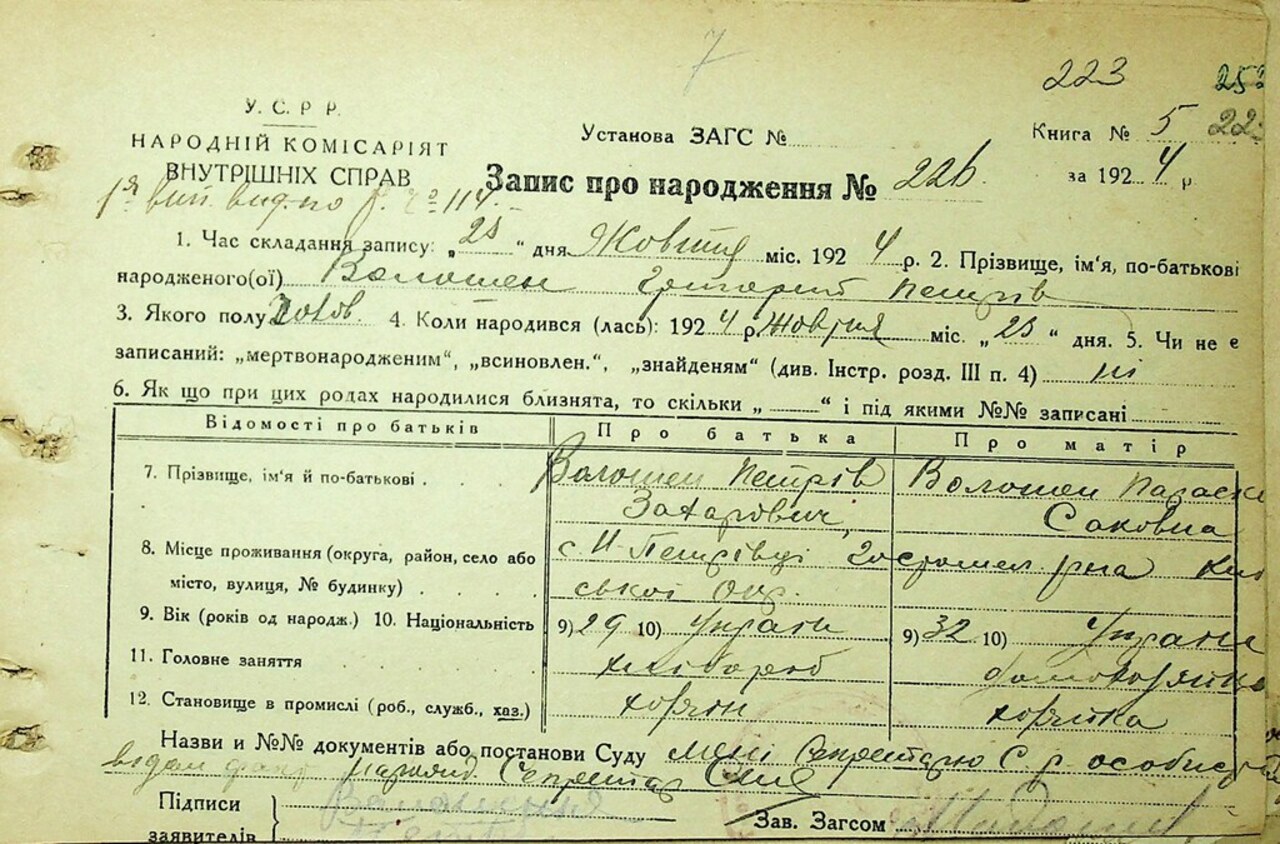 7
223
252
У. С. Р Р.
НАРОДНІЙ КОМІСАРІЯТ
ВНУТРІШНІХ СПРАВ
Установа ЗАГС №
Книга № 5 22
Запис про народження № 226.
за 1924 р
1. Час складання запису: „25“ дня Жовтня міс. 1924 р. 2. Прізвище, ім'я, по-батькові
народженого(ої) Волошен Григорій Петрів
3. Якого полу Холов. 4. Коли народився (лась): 1924 р Жовтня міс. „23“ дня. 5. Чи не є
записаний: „мертвонародженим“, „всиновлен.“, „знайденям“ (див. Інстр. розд. III п. 4) ні
6. Як що при цих родах народилися близнята, то скільки „ “ і під якими №№ записані
Відомості про батьків Про батька Про матір
7. Прізвище, ім'я й по-батькові Волошен Петрів Волошен Параск
Захарович, Саковна
8. Місце проживання (округа, район, село або с. Н Петрівці Гостомел р-на Киї
місто, вулиця, № будинку) ської Окр.
9. Вік (років од народж.) 10. Національність 9) 29 10) Украін 9) 32 10) Украін
11. Головне заняття хлібороб домохозяйка
12. Становище в промислі (роб., служб., хаз.) хозяін хозяйка
Назви и №№ документів або постанови Суду мені Секретарю С. р. особисто
Секретар
Підписи
заявителів
Зав. Загсом